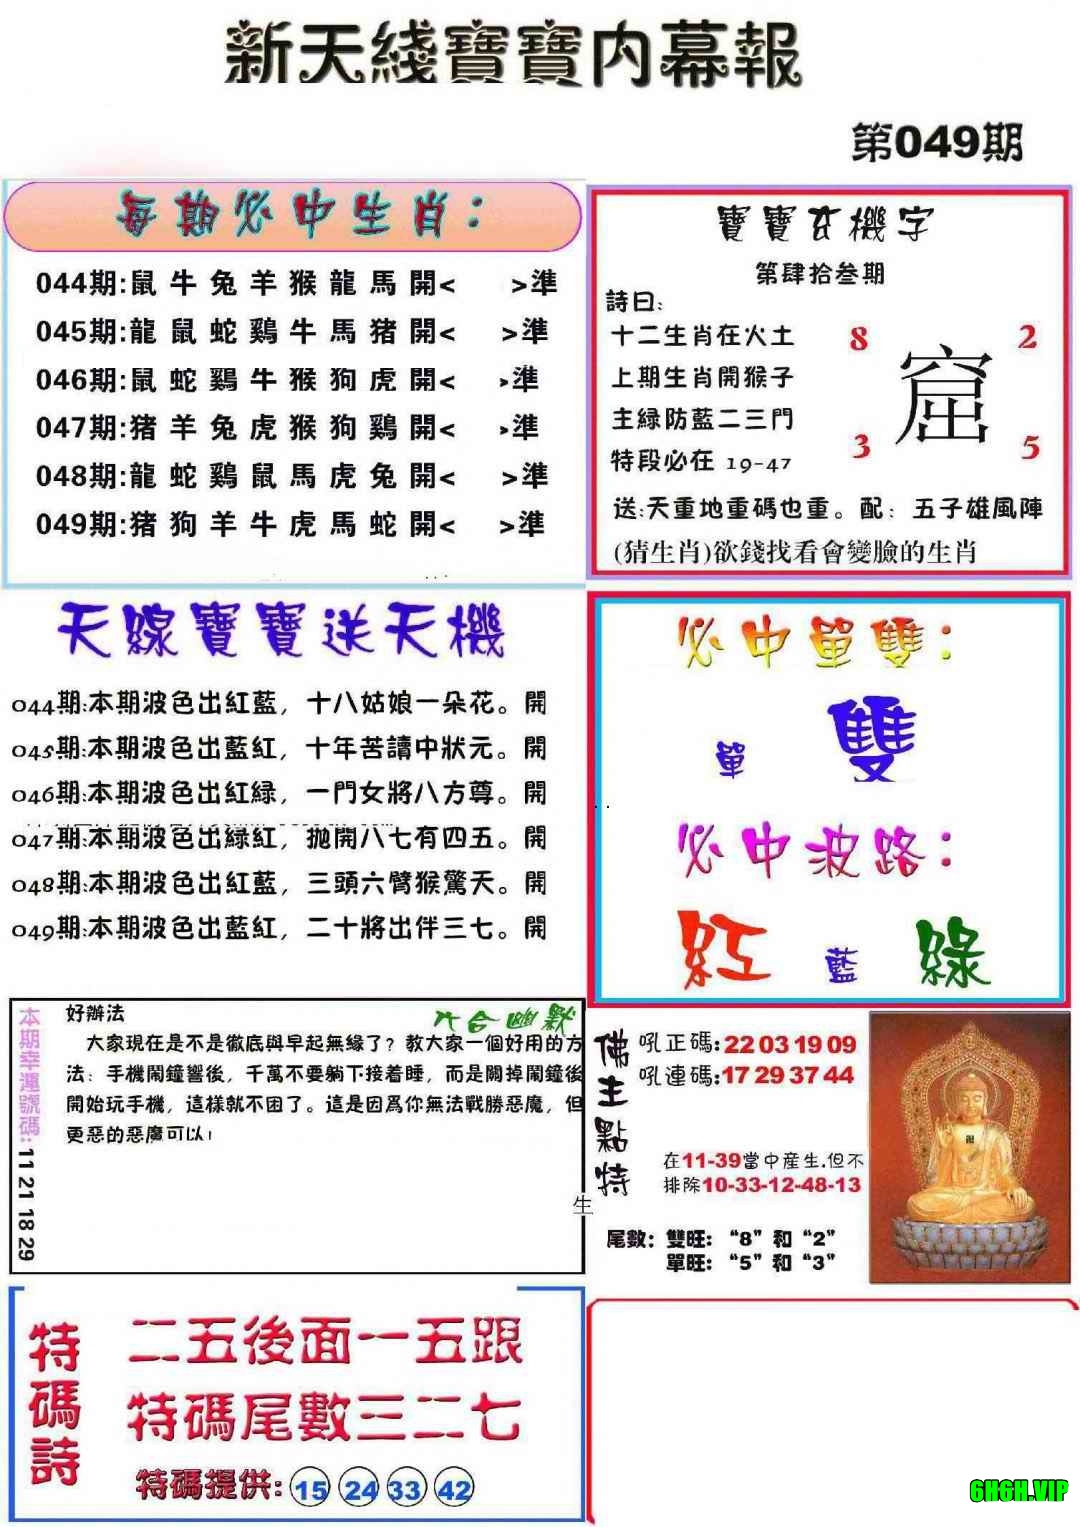 新天綫寶寶内幕報
第049期
每期必中生肖：
044期:鼠牛兔羊猴龍馬開<　>準
045期:龍鼠蛇鷄牛馬猪開<　>準
046期:鼠蛇鷄牛猴狗虎開<　>準
047期:猪羊兔虎猴狗鷄開<　>準
048期:龍蛇鷄鼠馬虎兔開<　>準
049期:猪狗羊牛虎馬蛇開<　>準
寶寶玄機字
第肆拾叁期
詩曰：
十二生肖在火土
上期生肖開猴子
主緑防藍二三門
特段必在 19-47
8 2
窟
3 5
送:天重地重碼也重。配：五子雄風陣
(猜生肖)欲錢找看會變臉的生肖
天線寶寶送天機
044期:本期波色出紅藍，十八姑娘一朵花。開
045期:本期波色出藍紅，十年苦讀中狀元。開
046期:本期波色出紅緑，一門女將八方尊。開
047期:本期波色出緑紅，抛開八七有四五。開
048期:本期波色出紅藍，三頭六臂猴驚天。開
049期:本期波色出藍紅，二十將出伴三七。開
必中單雙：
單 雙
必中波路：
紅 藍 綠
本期幸運號碼:11 21 18 29
六合幽默
好辦法
大家現在是不是徹底與早起無緣了？教大家一個好用的方
法：手機鬧鐘響後，千萬不要躺下接着睡，而是關掉鬧鐘後
開始玩手機，這樣就不困了。這是因爲你無法戰勝惡魔，但
更惡的惡魔可以！
生
佛主點特
吼正碼:22 03 19 09
吼連碼:17 29 37 44
在11-39當中産生.但不
排除10-33-12-48-13
尾數：雙旺：“8”和“2”
單旺：“5”和“3”
特碼詩
二五後面一五跟
特碼尾數三二七
特碼提供: 15 24 33 42
6H6H.VIP